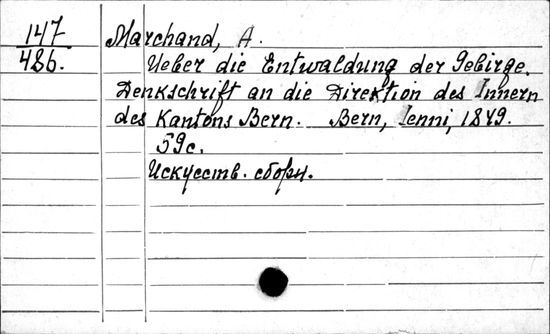 147
486.
Marchand, A.
Ueber die Entwaldung der Gebirge.
Denkschrift an die Direktion des Innern
des Kantons Bern. Bern, Ienni, 1849.
59с.
Искусств. сборн.